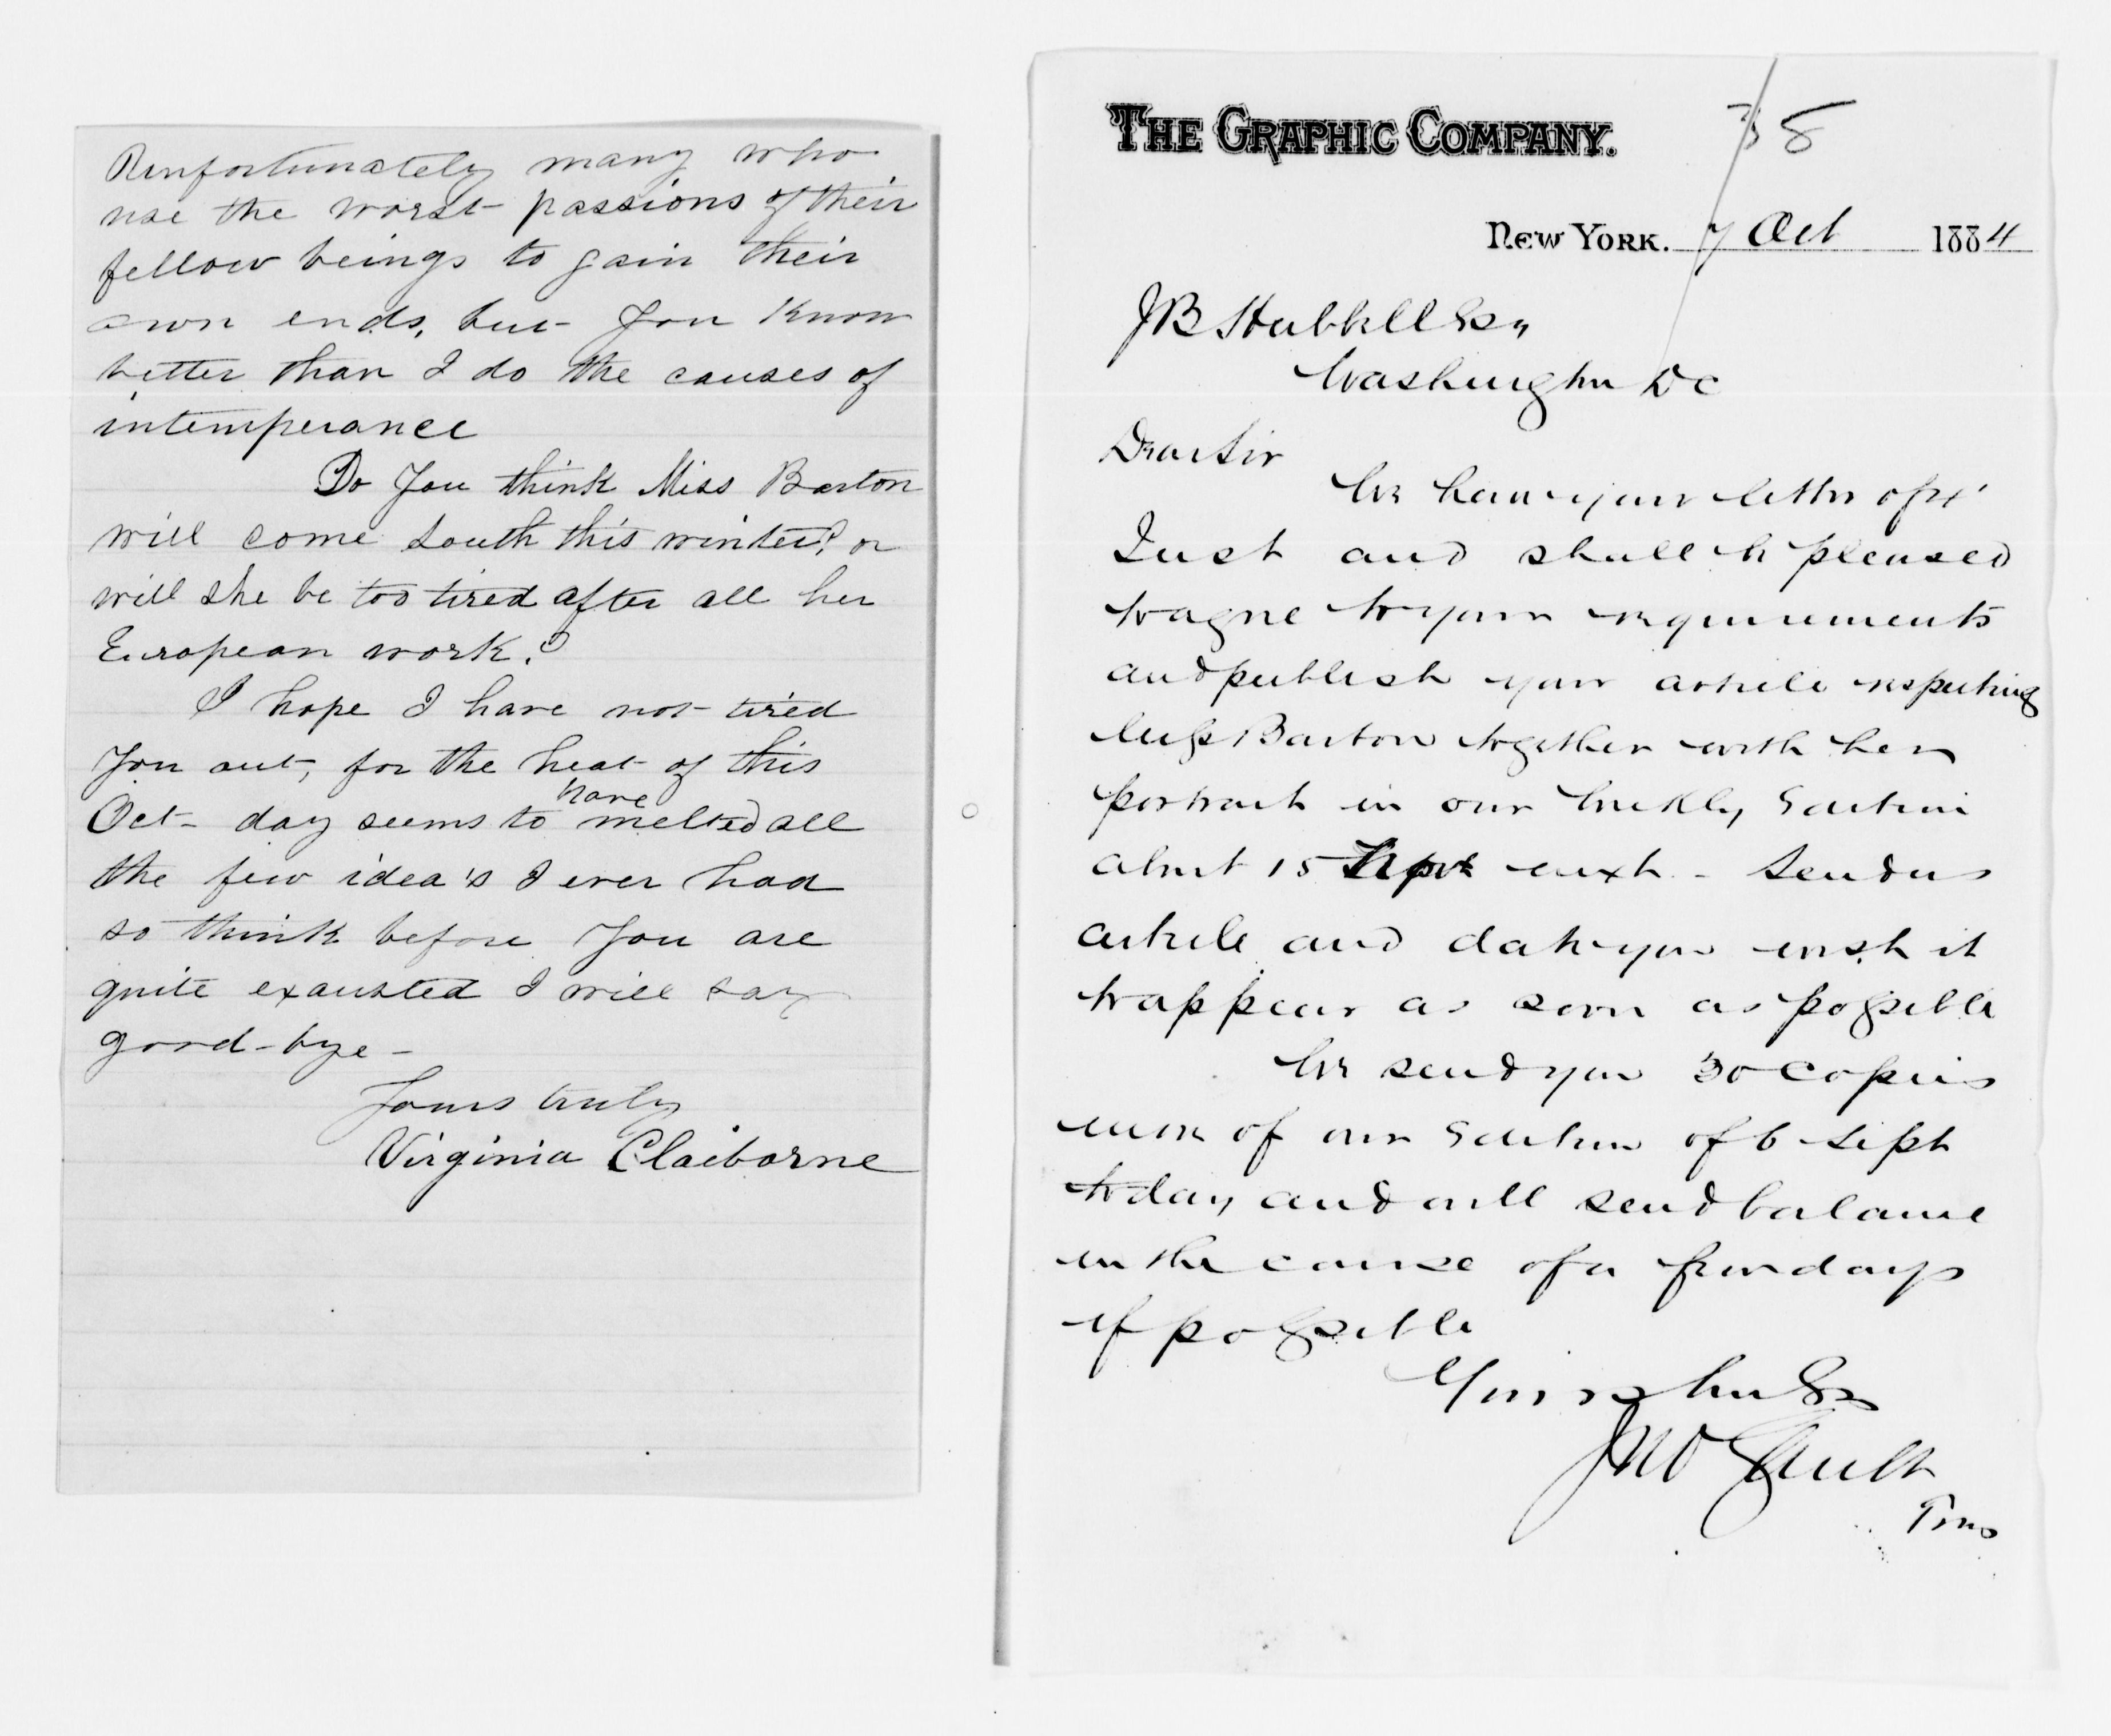 Unfortunately many who
use the worst passions of their
fellow beings to gain their
own ends, but you know
better than I do the causes of
intemperance
Do you think Miss Barton
will come South this winter? or
will she be too tired after all her
European work?
I hope I have not tired
you out, for the heat of this
have
Oct- day seems to melted all
the few idea's I ever had
so think before you are
quite exausted I will say
good-bye-
Yours truly
Virginia Claiborne
THE GRAPHIC COMPANY.
38
NEW YORK. 7 Oct 1884
JB Hubbell Esq
Washington DC
Dear Sir
We have your letter of 4th
Inst and shall be pleased
to agree to your requirements
and publish your article respecting
Miss Barton together with her
portrait in our Weekly Edition
about 15 next - Send us
article and date you wish it
to appear as soon as possible
We send you 30 copies
more of our Edition of 6 Sept
today and will send balance
in the course of a few days
if possible
Yours truly
Gault
Pres